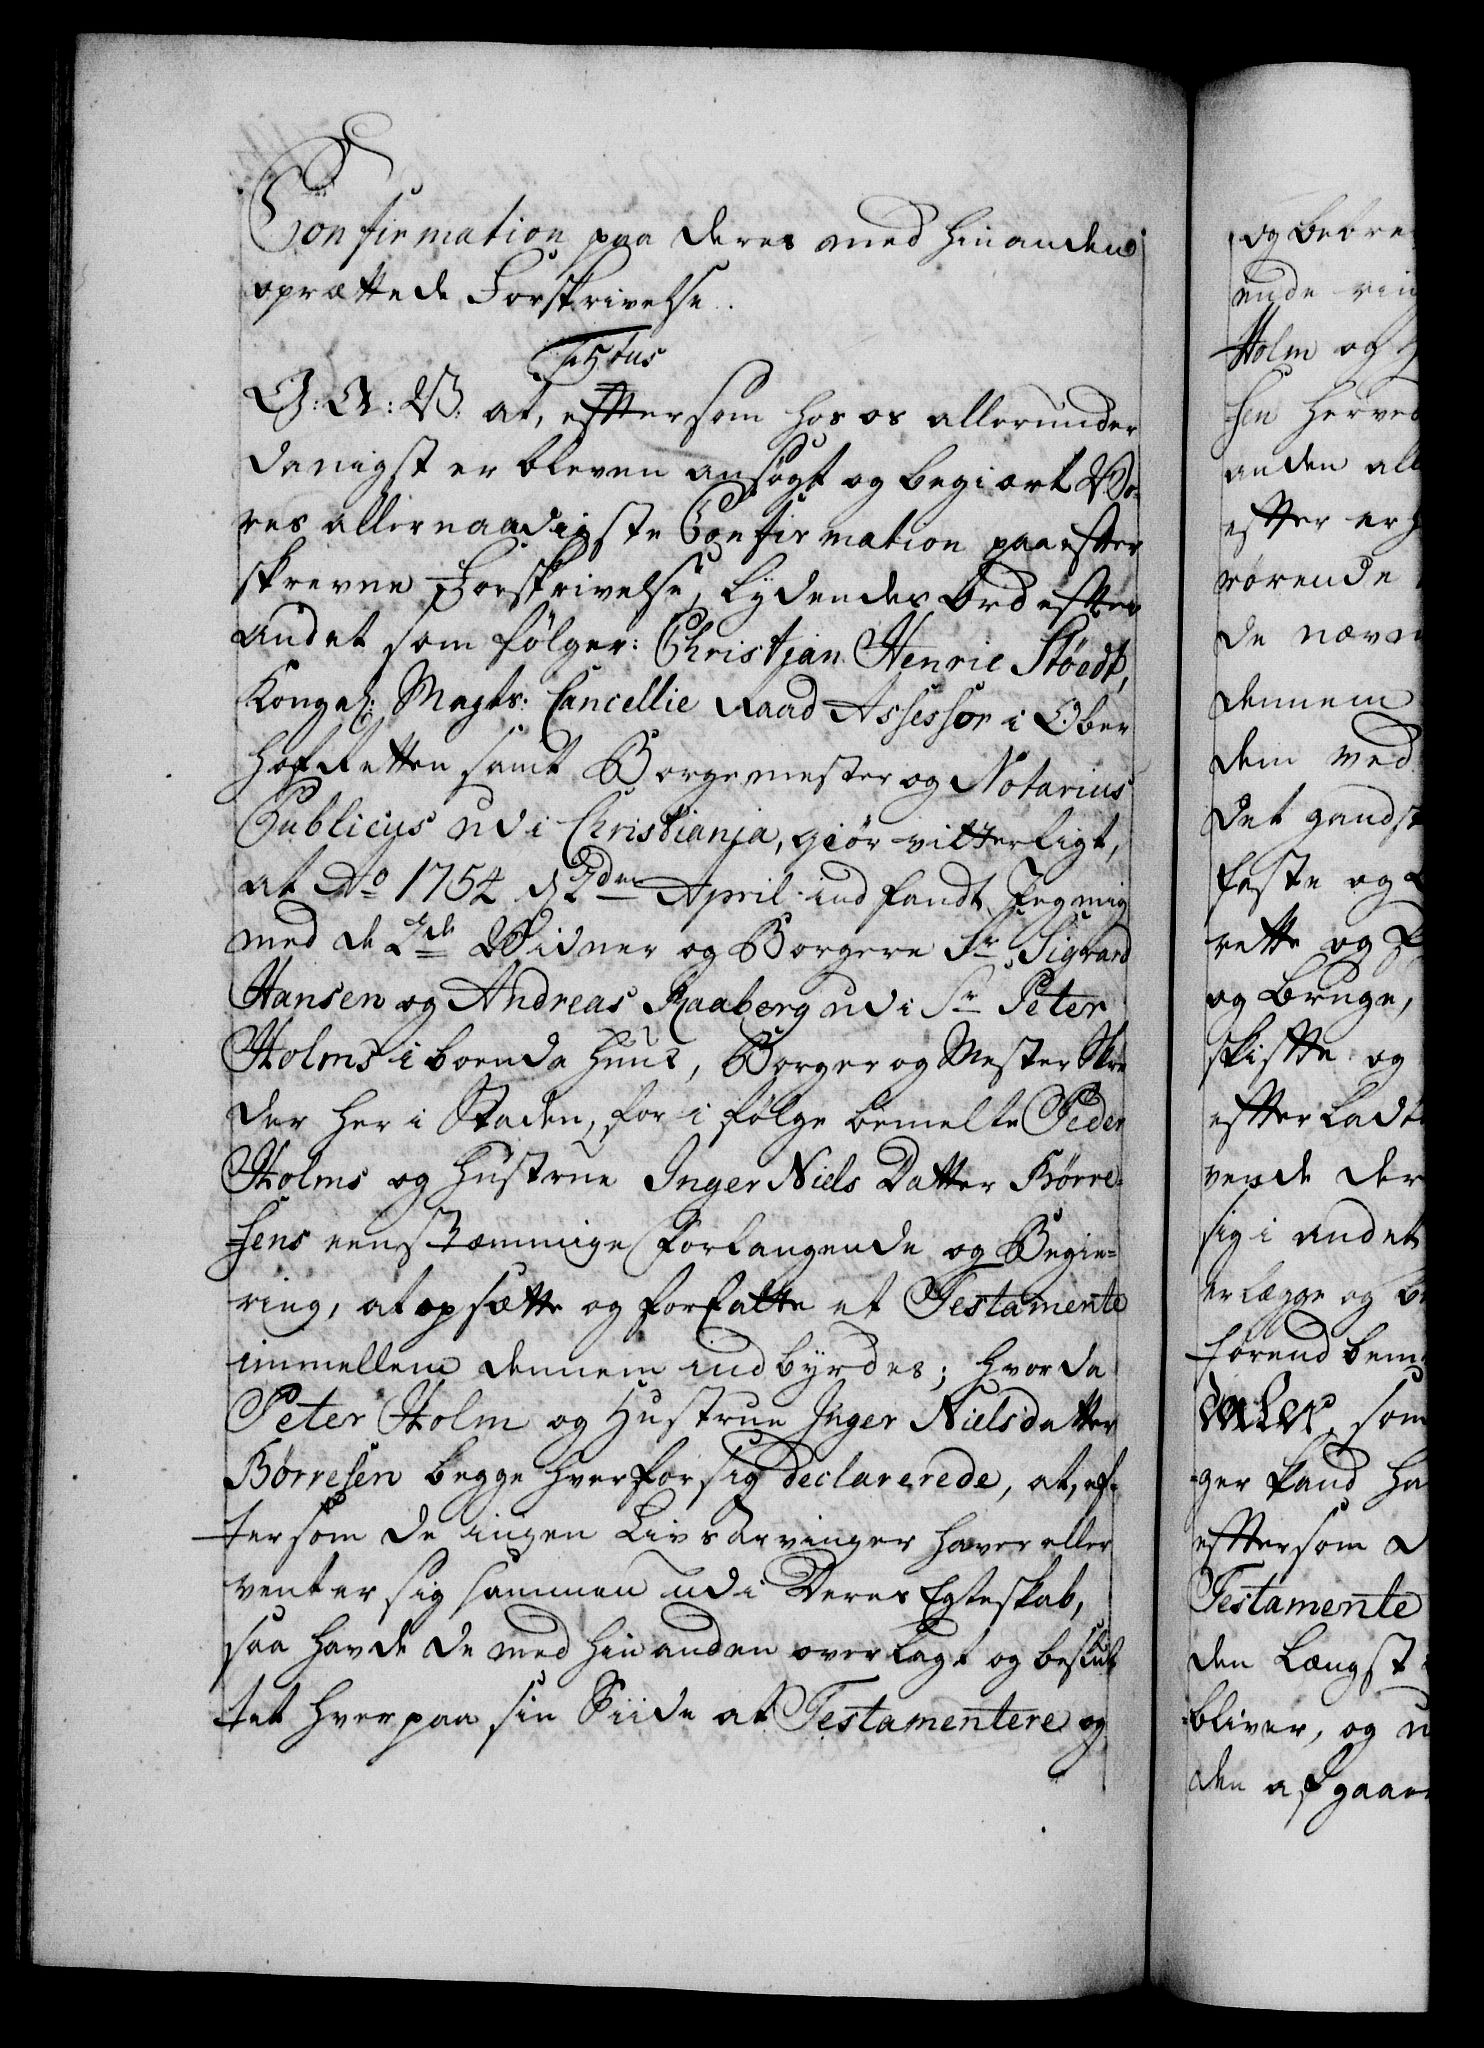 Confirmation paa deres med hinanden
oprættede Forskrivelse.
Textus
G: A: W: at, eftersom hos os allerunder
danigst er bleven ansøgt og begiært Vo-
res allernaadigste Confirmation paa efter
skrevne Forskrivelse, lydendes Ord efter
andet som følger: Christjan Henric Støedt,
Kongel: Mayts: Cancellie Raad Assessor i Ober
HofRetten samt Borgemester og Notarius
Publicus udi Christianja, giør vitterligt,
at Ao 1754 d 2den April indfandt Jeg mig
med de 2de Vidner og Borgere Sr Sigvard
Hansen og Andreas Raaberg udi Sr Peter
Holms iboende Huus, Borger og Mester Skre
der her i Staden, for i følge bemelte Peder
Holms og Hustrue Inger Niels Datter Børre-
sens eenstemmige Forlangende og Begie-
ring, at opsætte og forfatte et Testamente
immellem dennem indbyrdes; hvor da
Peter Holm og Hustrue Inger Nielsdatter
Børresen begge hver for sig declarerede, at, ef-
tersom de ingen Livs Arvinger haver eller
venter sig sammen udi Deres Egteskab,
saa havde de med hinanden overlagt og beslut
tet hver paa sin Siide at Testamentere og
og bebre
ende vin
Holm og
sen herved
anden all
efter er h
rørende
de nævn
dennem
dem ved
det gandsk
faste og
rette og
og bruge,
skifte og
efterladt
vende der
sig i andet
erlægge og be
forend bem
som
ger kand ha
eftersom d
Testamente
den Længst
bliver, og u
den afgaae